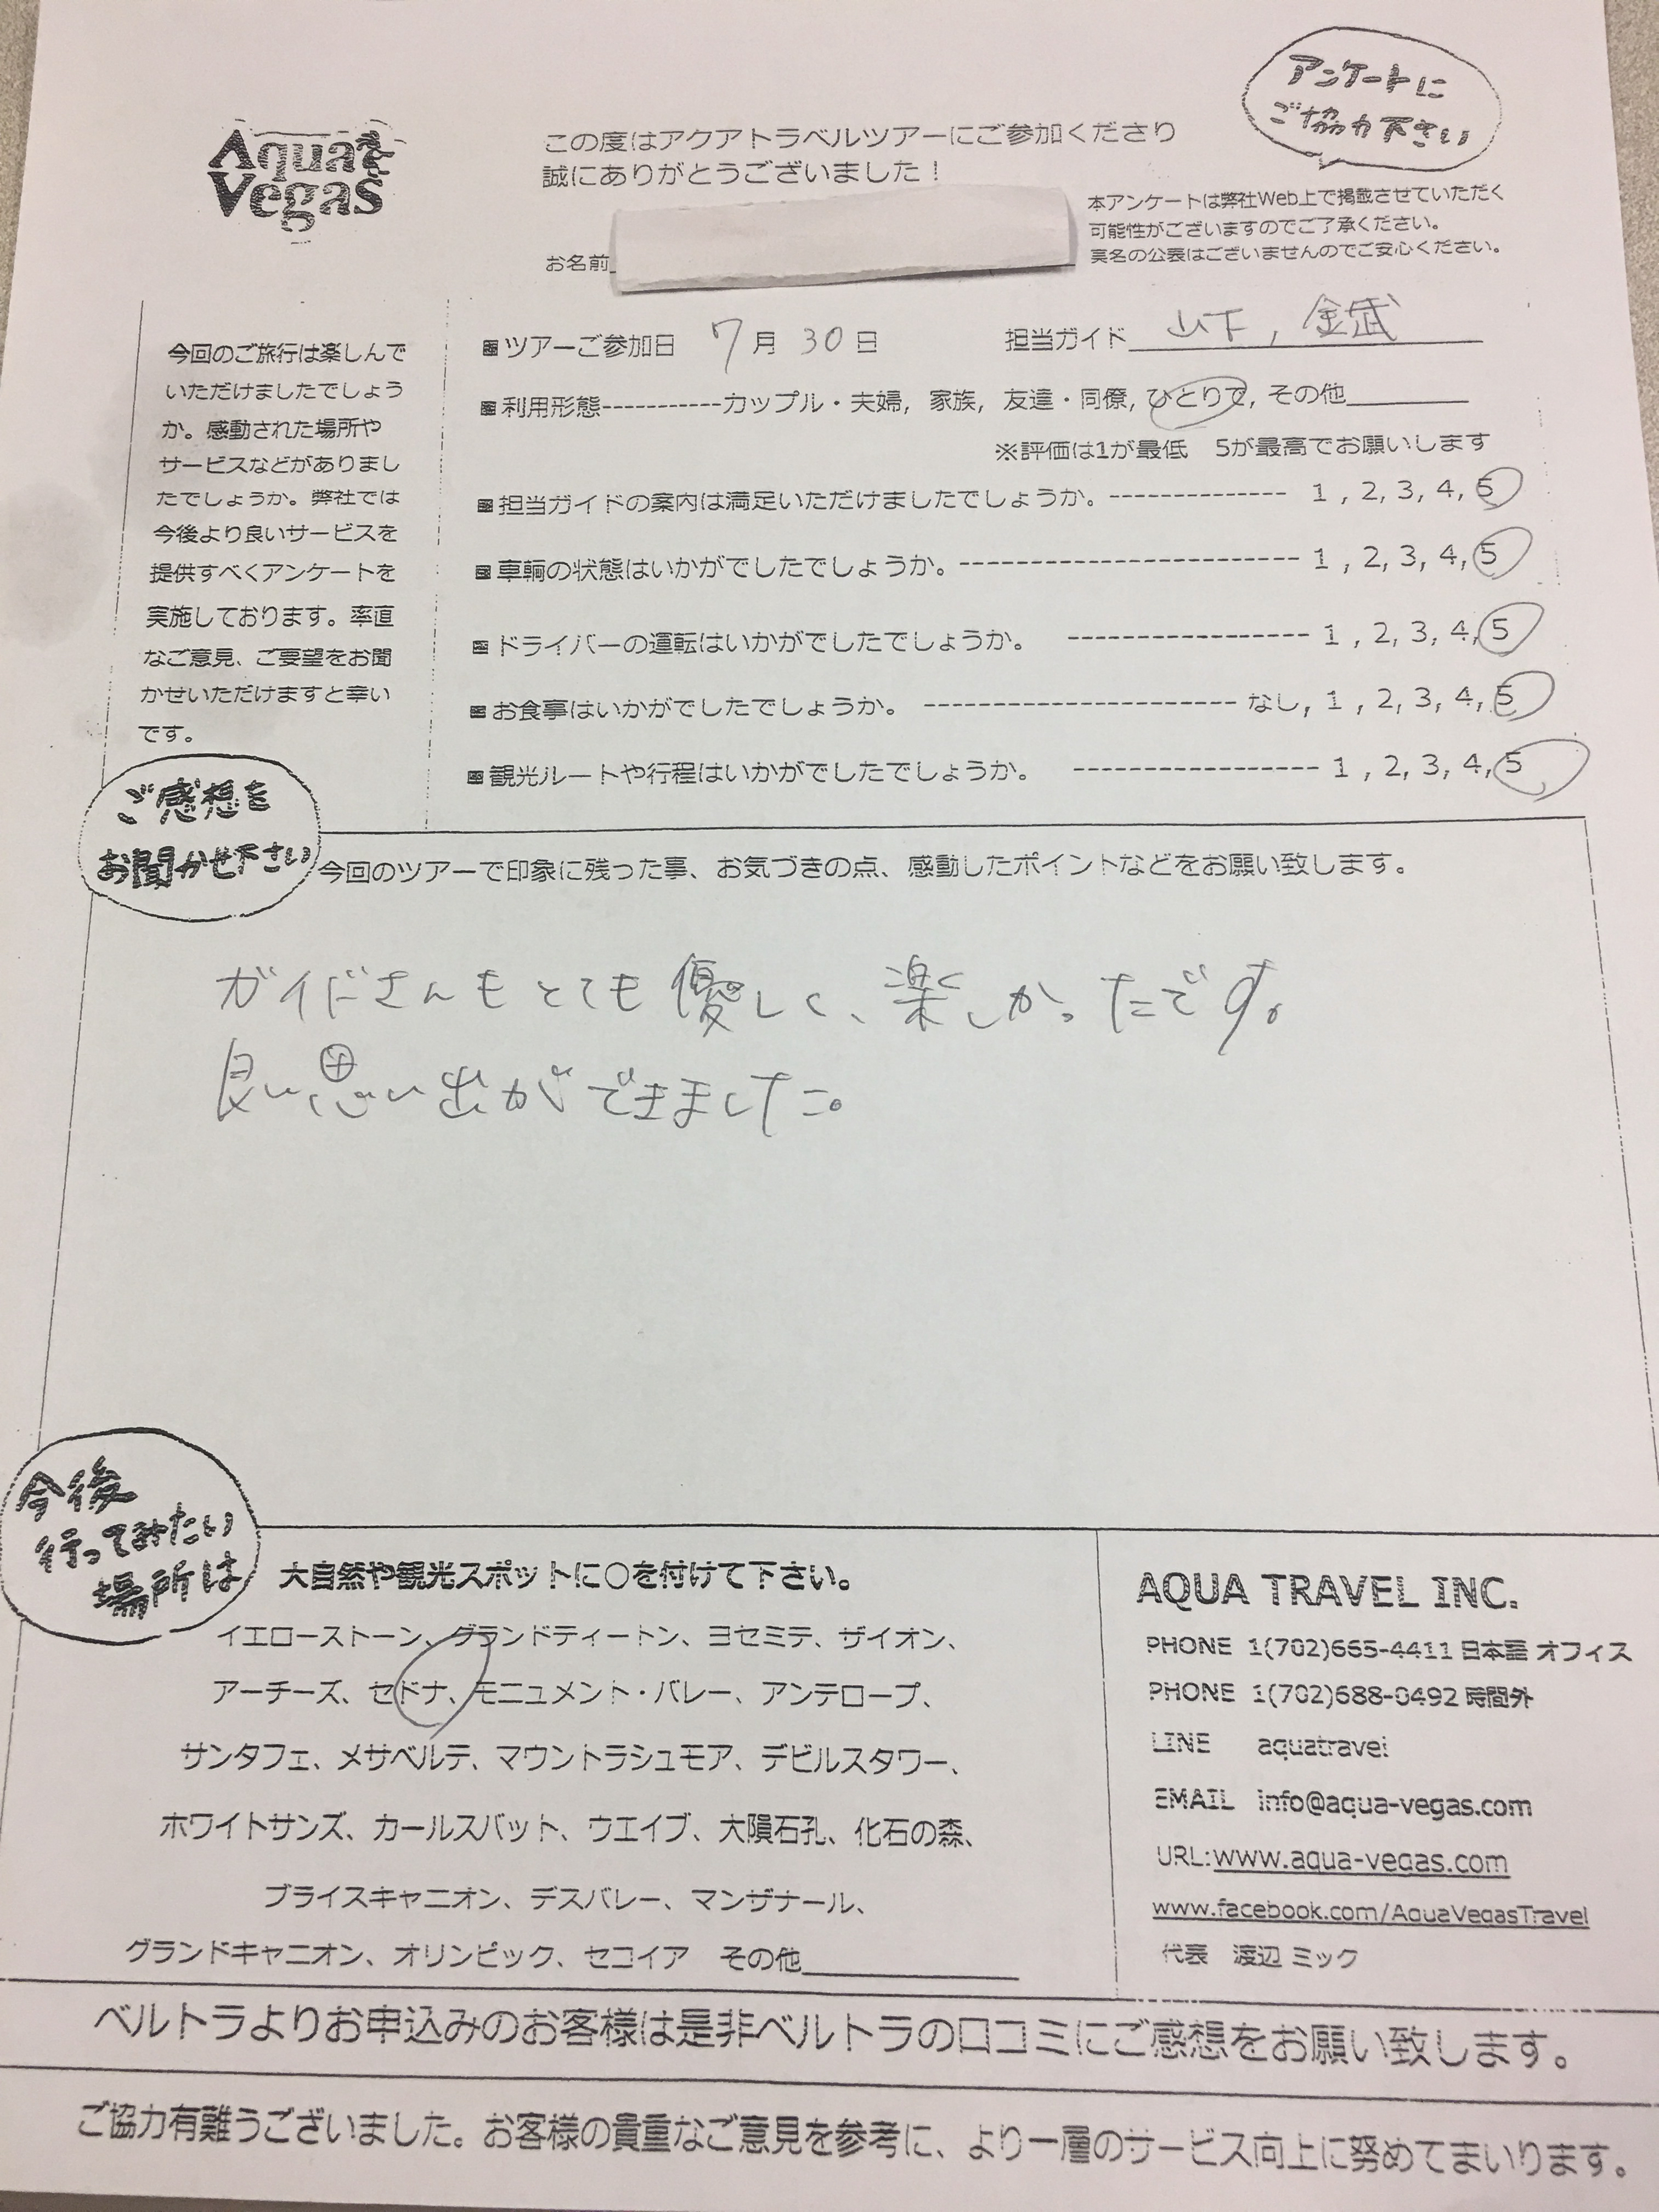 アンケートに
ご協力下さい
Aqua
Vegas
この度はアクアトラベルツアーにご参加くださり
誠にありがとうございました！
本アンケートは弊社Web上で掲載させていただく
可能性がございますのでご了承ください。
実名の公表はございませんのでご安心ください。
お名前
今回のご旅行は楽しんで
いただけましたでしょう
か。感動された場所や
サービスなどがありまし
たでしょうか。弊社では
今後より良いサービスを
提供すべくアンケートを
実施しております。率直
なご意見、ご要望をお聞
かせいただけますと幸い
です。
■ツアーご参加日 7月30日 担当ガイド 山下, 金城
■利用形態-----------カップル・夫婦, 家族, 友達・同僚, ひとりで, その他
※評価は1が最低 5が最高でお願いします
■担当ガイドの案内は満足いただけましたでしょうか。-------------- 1 , 2, 3, 4, 5
■車輌の状態はいかがでしたでしょうか。--------------------------- 1 , 2, 3, 4, 5
■ドライバーの運転はいかがでしたでしょうか。 ------------------- 1 , 2, 3, 4, 5
■お食事はいかがでしたでしょうか。 ------------------------- なし, 1 , 2, 3, 4, 5
■観光ルートや行程はいかがでしたでしょうか。 ------------------- 1 , 2, 3, 4, 5
ご感想を
お聞かせ下さい
今回のツアーで印象に残った事、お気づきの点、感動したポイントなどをお願い致します。
ガイドさんもとても優しく、楽しかったです。
良い思い出ができました。
今後
行ってみたい
場所は
大自然や観光スポットに○を付けて下さい。
イエローストーン、グランドティートン、ヨセミテ、ザイオン、
アーチーズ、セドナ、モニュメント・バレー、アンテロープ、
サンタフェ、メサベルテ、マウントラシュモア、デビルスタワー、
ホワイトサンズ、カールスバット、ウエイブ、大隕石孔、化石の森、
ブライスキャニオン、デスバレー、マンザナール、
グランドキャニオン、オリンピック、セコイア その他
AQUA TRAVEL INC.
PHONE 1(702)665-4411 日本語 オフィス
PHONE 1(702)688-0492 時間外
LINE aquatravel
EMAIL info@aqua-vegas.com
URL:www.aqua-vegas.com
www.facebook.com/AquaVegasTravel
代表 渡辺 ミック
ベルトラよりお申込みのお客様は是非ベルトラの口コミにご感想をお願い致します。
ご協力有難うございました。お客様の貴重なご意見を参考に、より一層のサービス向上に努めてまいります。